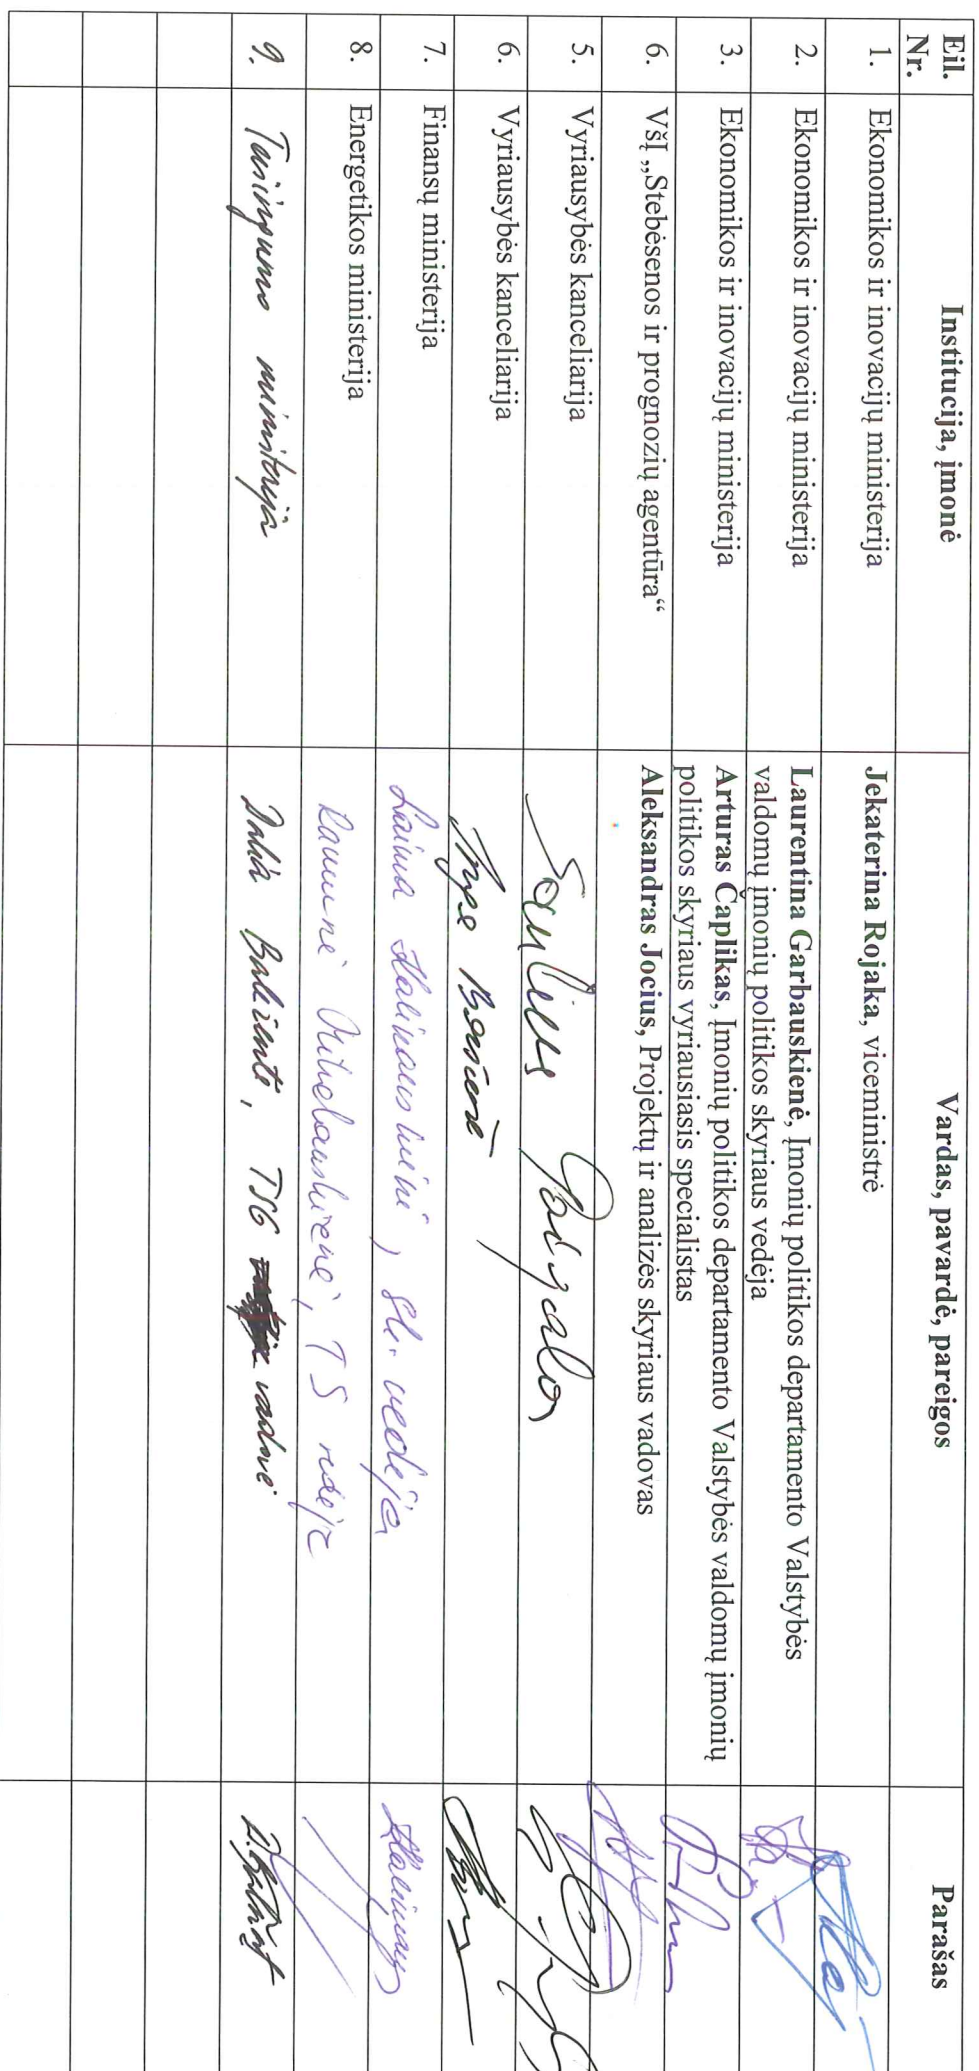 Eil. Nr. Institucija, įmonė Vardas, pavardė, pareigos Parašas
1. Ekonomikos ir inovacijų ministerija Jekaterina Rojaka, viceministrė
2. Ekonomikos ir inovacijų ministerija Laurentina Garbauskienė, Įmonių politikos departamento Valstybės
valdomų įmonių politikos skyriaus vedėja
3. Ekonomikos ir inovacijų ministerija Arturas Čaplikas, Įmonių politikos departamento Valstybės valdomų įmonių
politikos skyriaus vyriausiasis specialistas
6. VšĮ „Stebėsenos ir prognozių agentūra“ Aleksandras Jocius, Projektų ir analizės skyriaus vadovas
5. Vyriausybės kanceliarija Saulius
6. Vyriausybės kanceliarija
7. Finansų ministerija Laima Kalinauskienė, sk. vedėja
8. Energetikos ministerija Ramunė
9. Teisingumo ministerija Dalia TSG vadovė